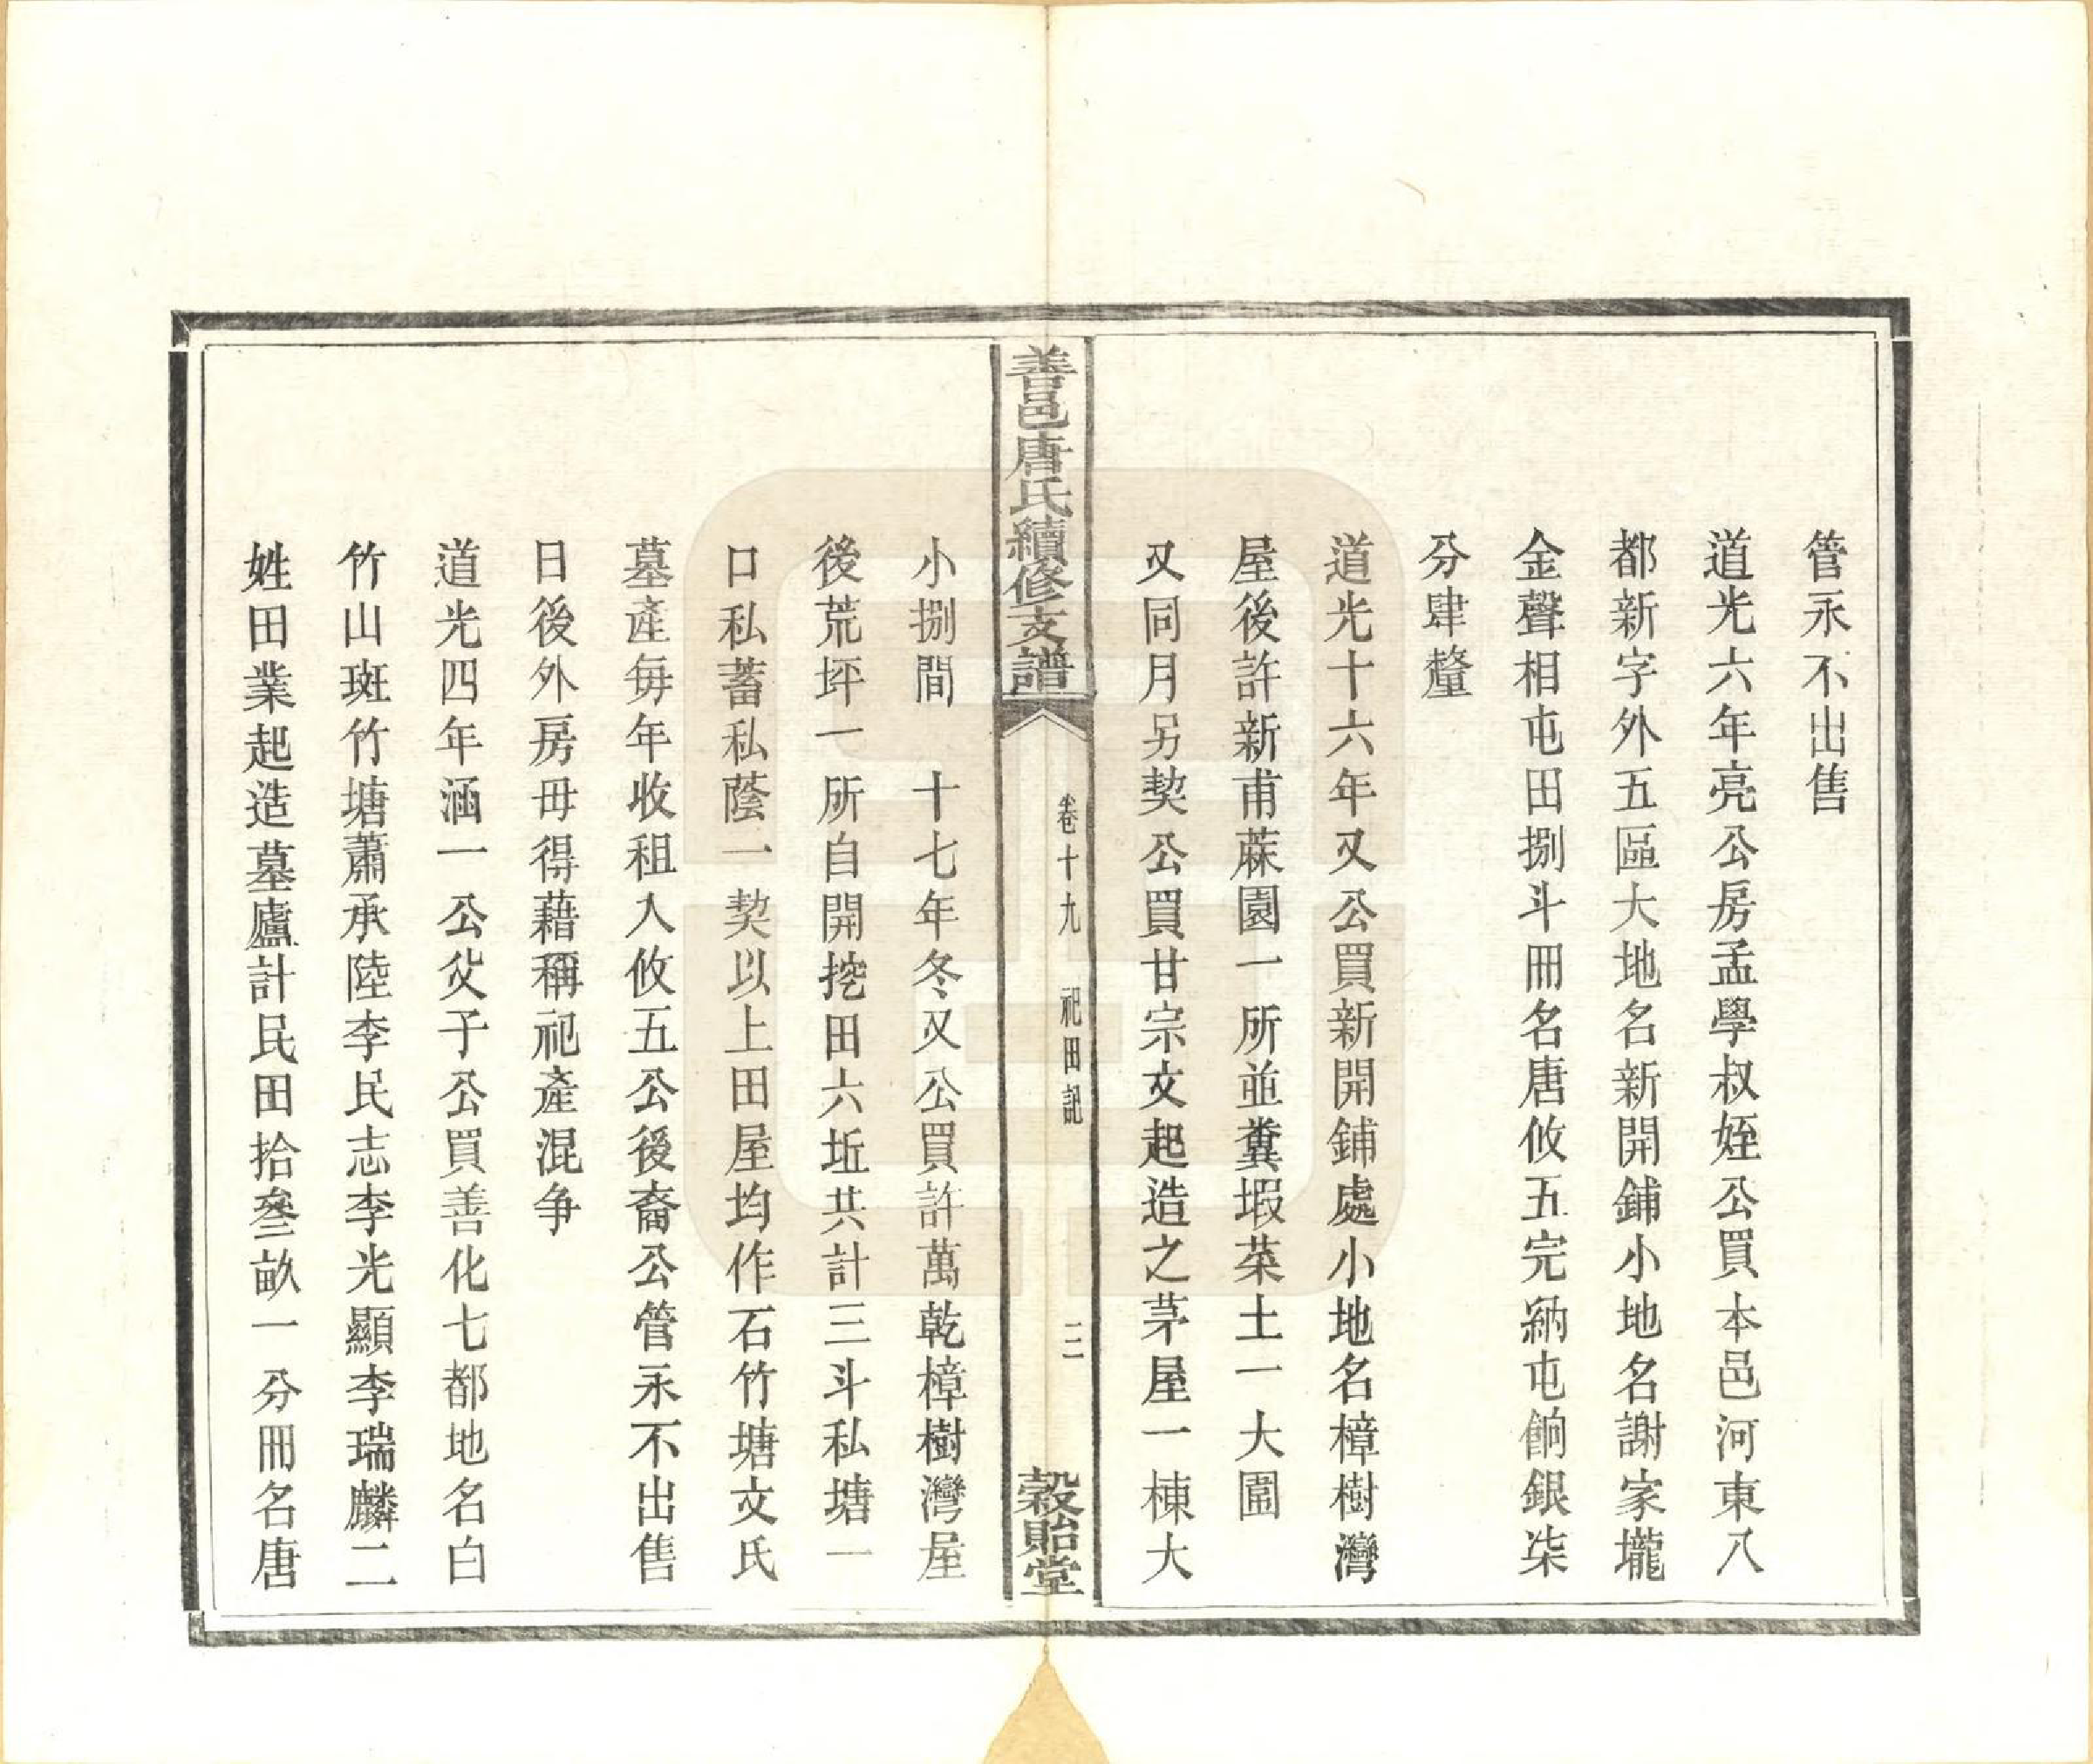 管永不出售
道光六年亮公房孟學叔姪公買本邑河東八
都新字外五區大地名新開鋪小地名謝家壠
金聲相屯田捌斗冊名唐攸五完納屯餉銀柒
分肆釐
道光十六年又公買新開鋪處小地名樟樹灣
屋後許新甫蔴園一所並糞塅菜土一大圍
又同月另契公買甘宗文起造之茅屋一棟大
善邑唐氏續修支譜
卷十九
祀田記
三
穀貽堂
小捌間　十七年冬又公買許萬乾樟樹灣屋
後荒坪一所自開挖田六坵共計三斗私塘一
口私蓄私蔭一契以上田屋均作石竹塘文氏
墓產每年收租入攸五公後裔公管永不出售
日後外房毋得藉稱祀產混争
道光四年涵一公父子公買善化七都地名白
竹山斑竹塘蕭承陸李民志李光顯李瑞麟二
姓田業起造墓廬計民田拾叄畝一分冊名唐